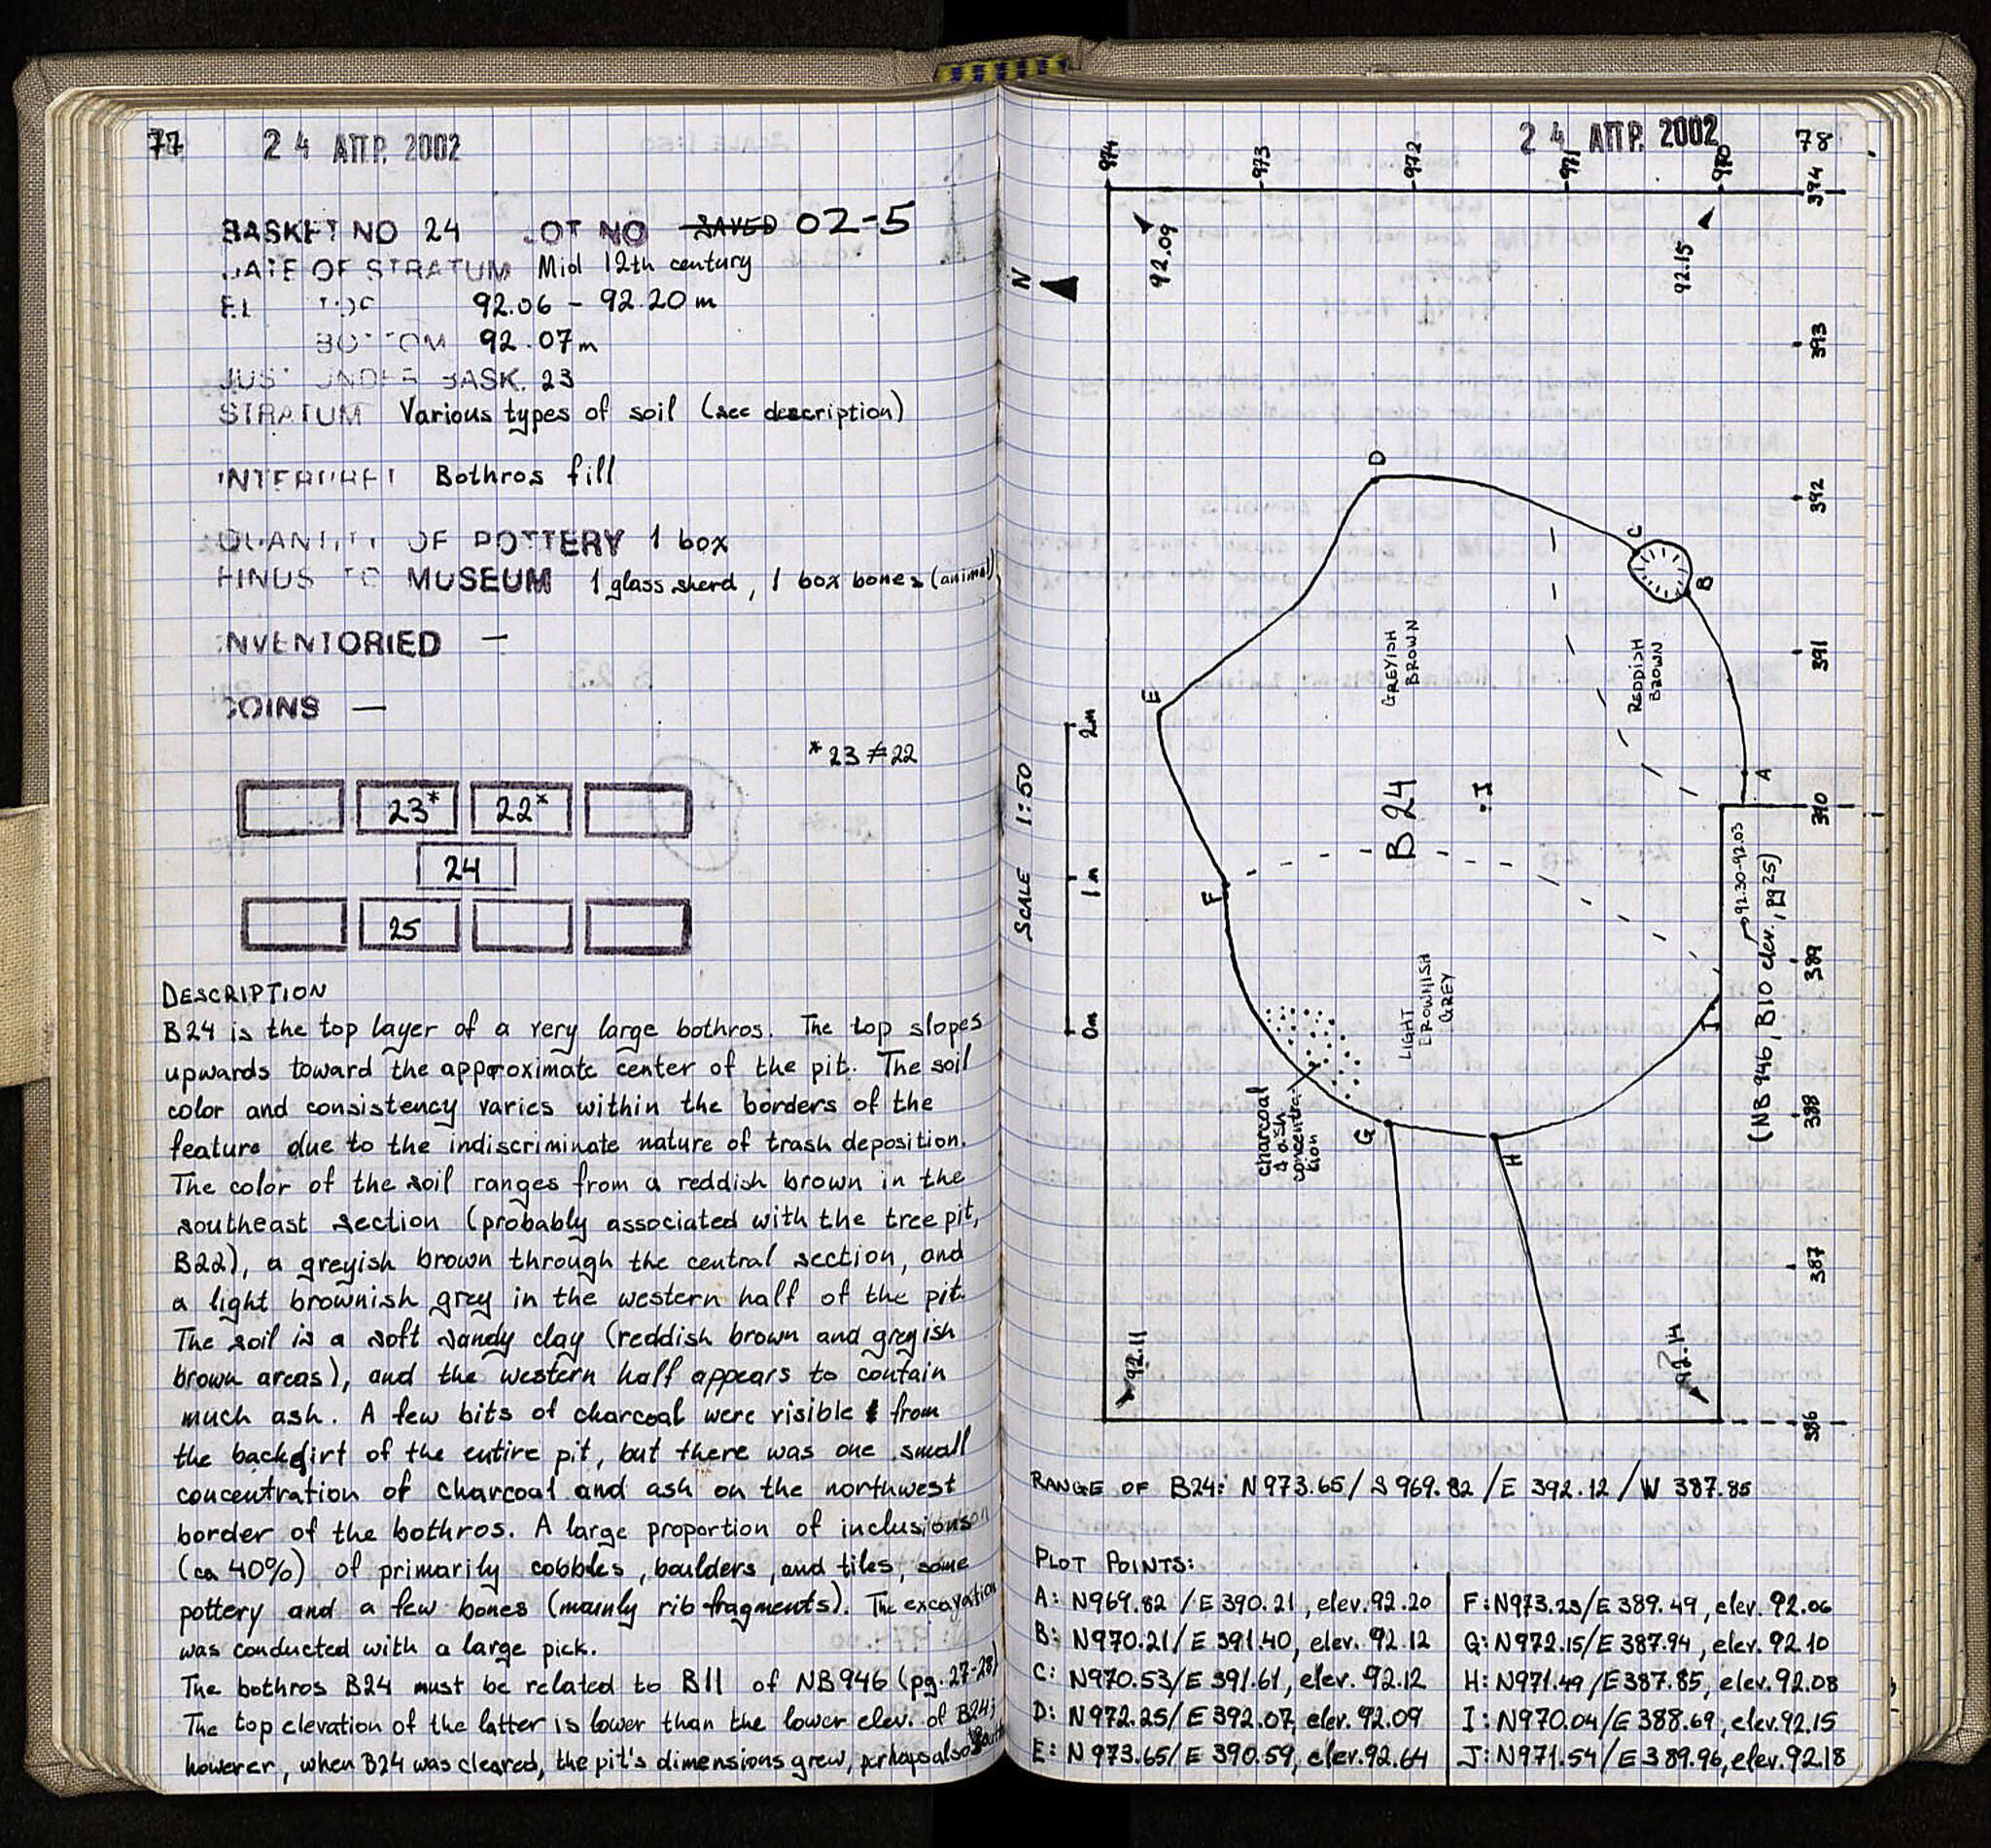 77
24 ΑΠΡ. 2002
BASKET NO 24 LOT NO SAVED 02-5
DATE OF STRATUM Mid 12th century
EL TOP 92.06 - 92.20 m
BOTTOM 92.07m
JUST UNDER BASK. 23
STRATUM Various types of soil (see description)
INTERPRET Bothros fill
QUANTITY OF POTTERY 1 box
FINDS TO MUSEUM 1 glass sherd, 1 box bones (animal)
INVENTORIED —
COINS —
*23≠22
23* 22*
24
25
DESCRIPTION
B24 is the top layer of a very large bothros. The top slopes
upwards toward the approximate center of the pit. The soil
color and consistency varies within the borders of the
feature due to the indiscriminate nature of trash deposition.
The color of the soil ranges from a reddish brown in the
southeast section (probably associated with the tree pit,
B22), a greyish brown through the central section, and
a light brownish grey in the western half of the pit.
The soil is a soft sandy clay (reddish brown and greyish
brown areas), and the western half appears to contain
much ash. A few bits of charcoal were visible from
the backdirt of the entire pit, but there was one small
concentration of charcoal and ash on the northwest
border of the bothros. A large proportion of inclusions
(ca 40%) of primarily cobbles, boulders, and tiles, some
pottery and a few bones (mainly rib fragments). The excavation
was conducted with a large pick.
The bothros B24 must be related to B11 of NB946 (pg. 27-28)
The top elevation of the latter is lower than the lower elev. of B24;
however, when B24 was cleared, the pit's dimensions grew, perhaps also
24 ΑΠΡ. 2002
78
974
973
972
971
970
394
393
392
391
390
389
388
387
386
N
92.09
92.15
92.11
92.14
SCALE 1:50
0m
1m
2m
A
B
C
D
E
F
G
H
I
.I
B24
GREYISH
BROWN
REDDISH
BROWN
LIGHT
BROWNISH
GREY
charcoal
& ash
concentra-
tion
92.30-92.03
(NB946, B10 elev., pg 25)
RANGE OF B24: N973.65/S969.82/E 392.12/W 387.85
PLOT POINTS:
A: N969.82/E390.21, elev. 92.20
B: N970.21/E391.40, elev. 92.12
C: N970.53/E391.61, elev. 92.12
D: N972.25/E392.07, elev. 92.09
E: N973.65/E390.59, elev. 92.64
F: N973.23/E389.49, elev. 92.06
G: N972.15/E387.94, elev. 92.10
H: N971.49/E387.85, elev. 92.08
I: N970.04/E388.69, elev. 92.15
J: N971.54/E389.96, elev. 92.18